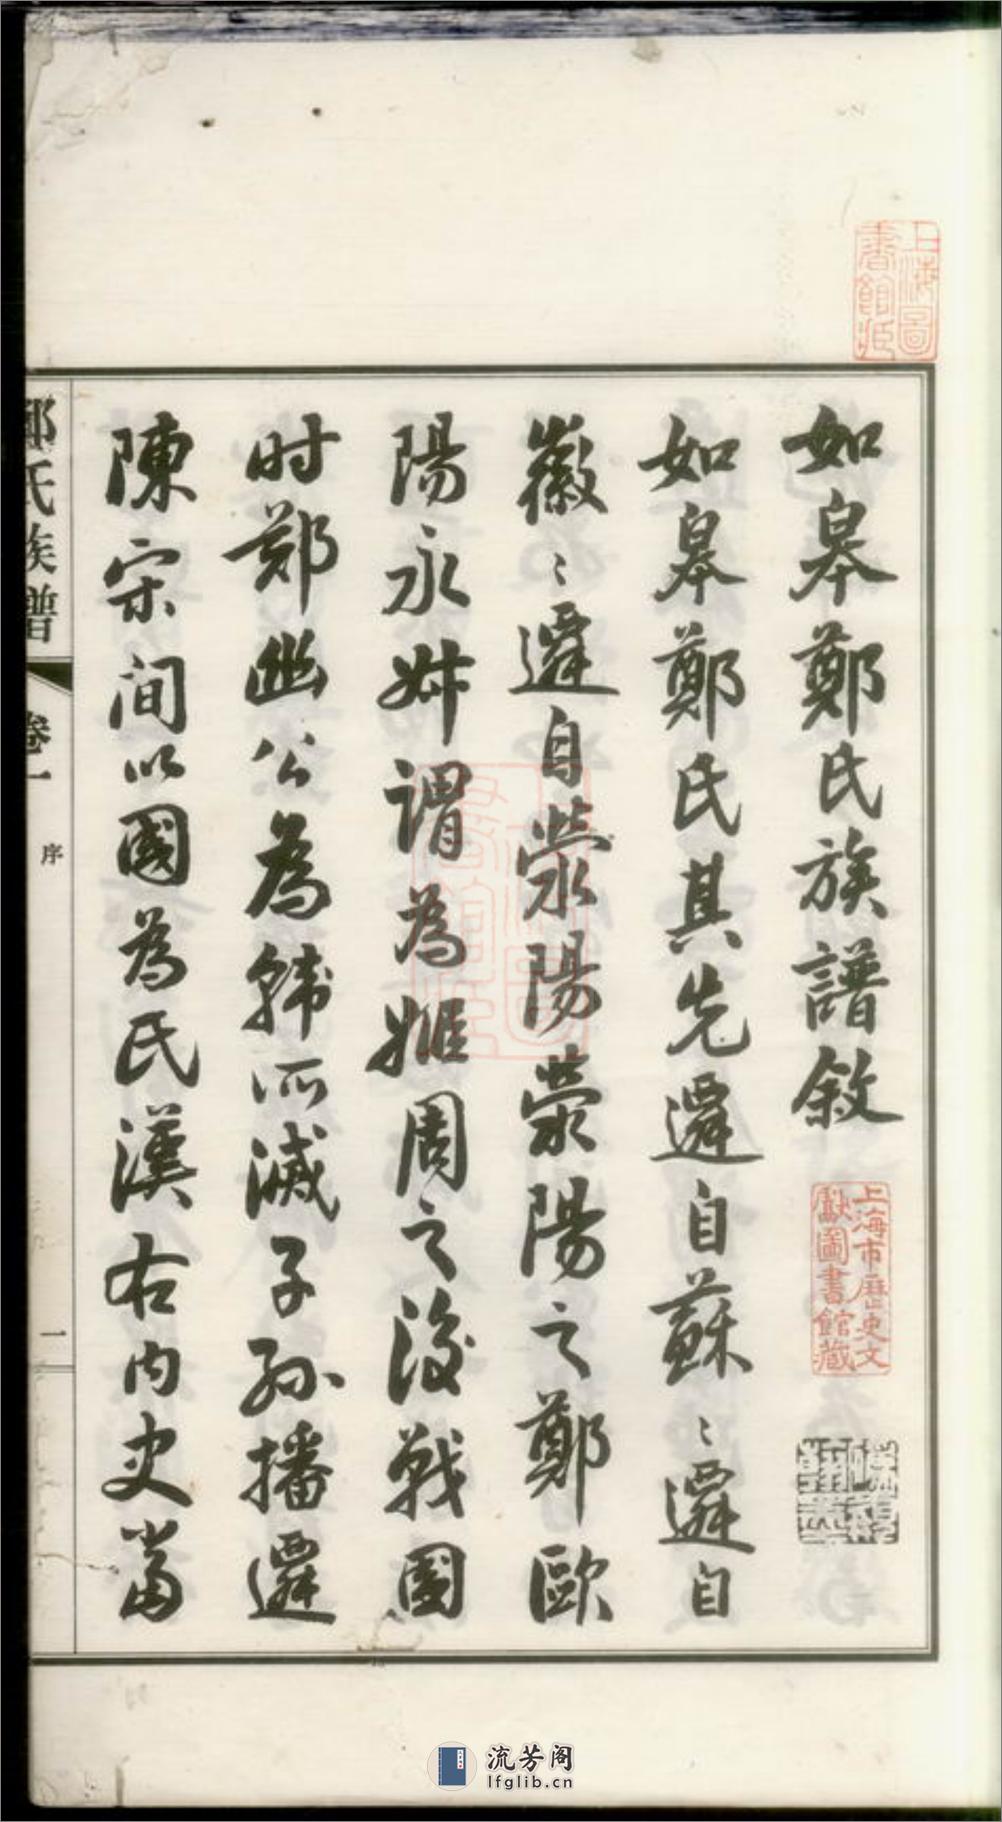 如皋鄭氏族譜敘
如皋鄭氏其先遷自蘇〻遷自
徽〻遷自滎陽滎陽之鄭歐
陽永叔謂為姬周之後戰國
时鄭幽公為韓所滅子孫播遷
陳宋间以國為氏漢右内史當
鄭氏族譜
卷一
序
一
上海圖書館藏
上海市歷史文獻圖書館藏
流芳阁
lfglib.cn